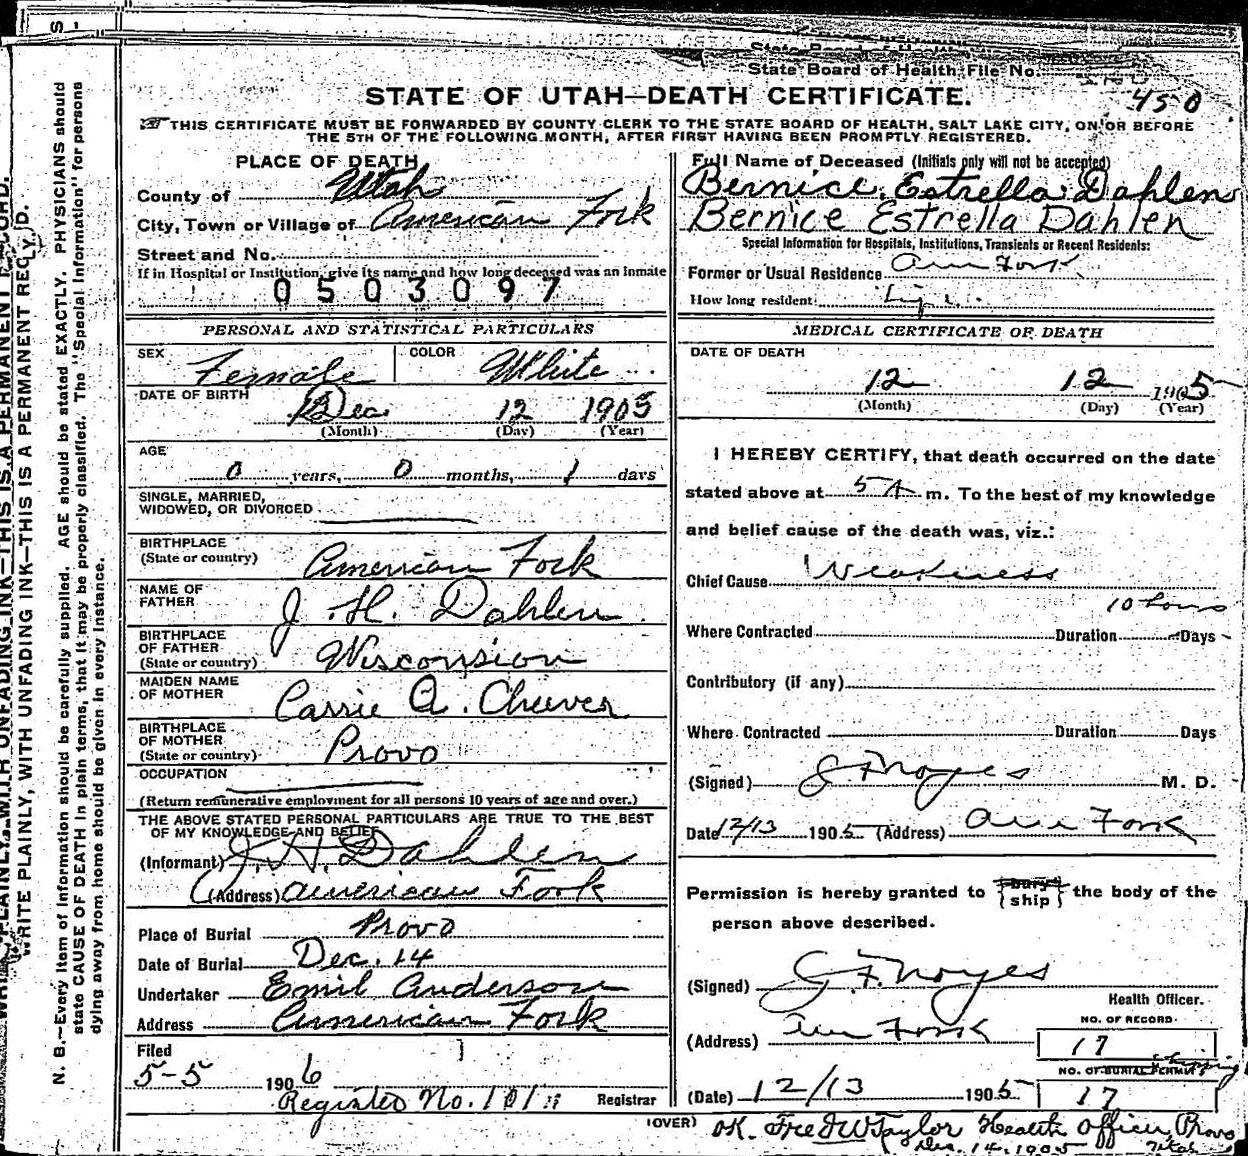 State Board of Health File No.
450
STATE OF UTAH—DEATH CERTIFICATE.
THIS CERTIFICATE MUST BE FORWARDED BY COUNTY CLERK TO THE STATE BOARD OF HEALTH, SALT LAKE CITY, ON OR BEFORE
THE 5TH OF THE FOLLOWING MONTH, AFTER FIRST HAVING BEEN PROMPTLY REGISTERED.
PLACE OF DEATH,
County of Utah
City, Town or Village of American Fork
Street and No.
If in Hospital or Institution, give its name and how long deceased was an inmate
0503097
PERSONAL AND STATISTICAL PARTICULARS
SEX Female COLOR White
DATE OF BIRTH Dec 12 1905
(Month) (Day) (Year)
AGE
0 years, 0 months, 1 days
SINGLE, MARRIED,
WIDOWED, OR DIVORCED
BIRTHPLACE
(State or country) American Fork
NAME OF
FATHER J. H. Dahlen
BIRTHPLACE
OF FATHER
(State or country) Wisconsion
MAIDEN NAME
OF MOTHER Carrie A. Cheever
BIRTHPLACE
OF MOTHER
(State or country) Provo
OCCUPATION
(Return remunerative employment for all persons 10 years of age and over.)
THE ABOVE STATED PERSONAL PARTICULARS ARE TRUE TO THE BEST
OF MY KNOWLEDGE AND BELIEF
(Informant) J. H. Dahlen
(Address) American Fork
Place of Burial Provo
Date of Burial Dec. 14
Undertaker Emil Anderson
Address American Fork
Filed
5-5 1906
Registrar
Registed No. 101
Full Name of Deceased (Initials only will not be accepted)
Bernice Estrella Dahlen
Bernice Estrella Dahlen
Special Information for Hospitals, Institutions, Transients or Recent Residents:
Former or Usual Residence Am Fork
How long resident
MEDICAL CERTIFICATE OF DEATH
DATE OF DEATH
12 12 1905
(Month) (Day) (Year)
I HEREBY CERTIFY, that death occurred on the date
stated above at 5 A m. To the best of my knowledge
and belief cause of the death was, viz.:
Chief Cause Weakness
10 hours
Where Contracted Duration Days
Contributory (if any)
Where Contracted Duration Days
(Signed) G F Noyes M. D.
Date 12/13 1905 (Address) Am Fork
Permission is hereby granted to bury ship the body of the
person above described.
(Signed) G. F. Noyes
Health Officer.
(Address) Am Fork
NO. OF RECORD
17
NO. OF BURIAL PERMIT shipping
17
(Date) 12/13 1905
(OVER) OK. Fred W Taylor Health Officer, Provo
Dec. 14, 1905 Utah
N. B.—Every item of information should be carefully supplied. AGE should be stated EXACTLY. PHYSICIANS should
state CAUSE OF DEATH in plain terms, that it may be properly classified. The "Special Information" for persons
dying away from home should be given in every instance.
WRITE PLAINLY, WITH UNFADING INK—THIS IS A PERMANENT RECORD.